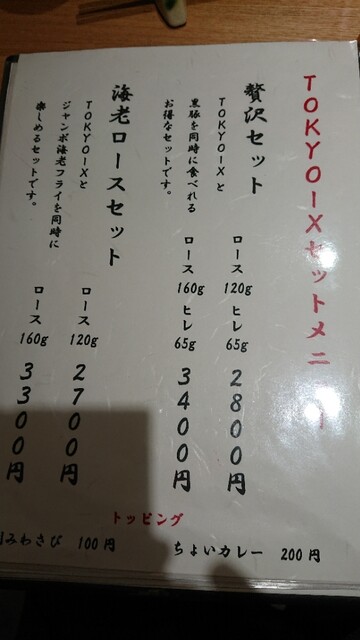 TOKYO-Xセットメニ
贅沢セット
TOKYO-Xと
黒豚を同時に食べれる
お得なセットです。
ロース120g ヒレ65g 2800円
ロース160g ヒレ65g 3400円
海老ロースセット
TOKYO-Xと
ジャンボ海老フライを同時に
楽しめるセットです。
ロース120g 2700円
ロース160g 3300円
トッピング
ちょいカレー 200円
みわさび 100円